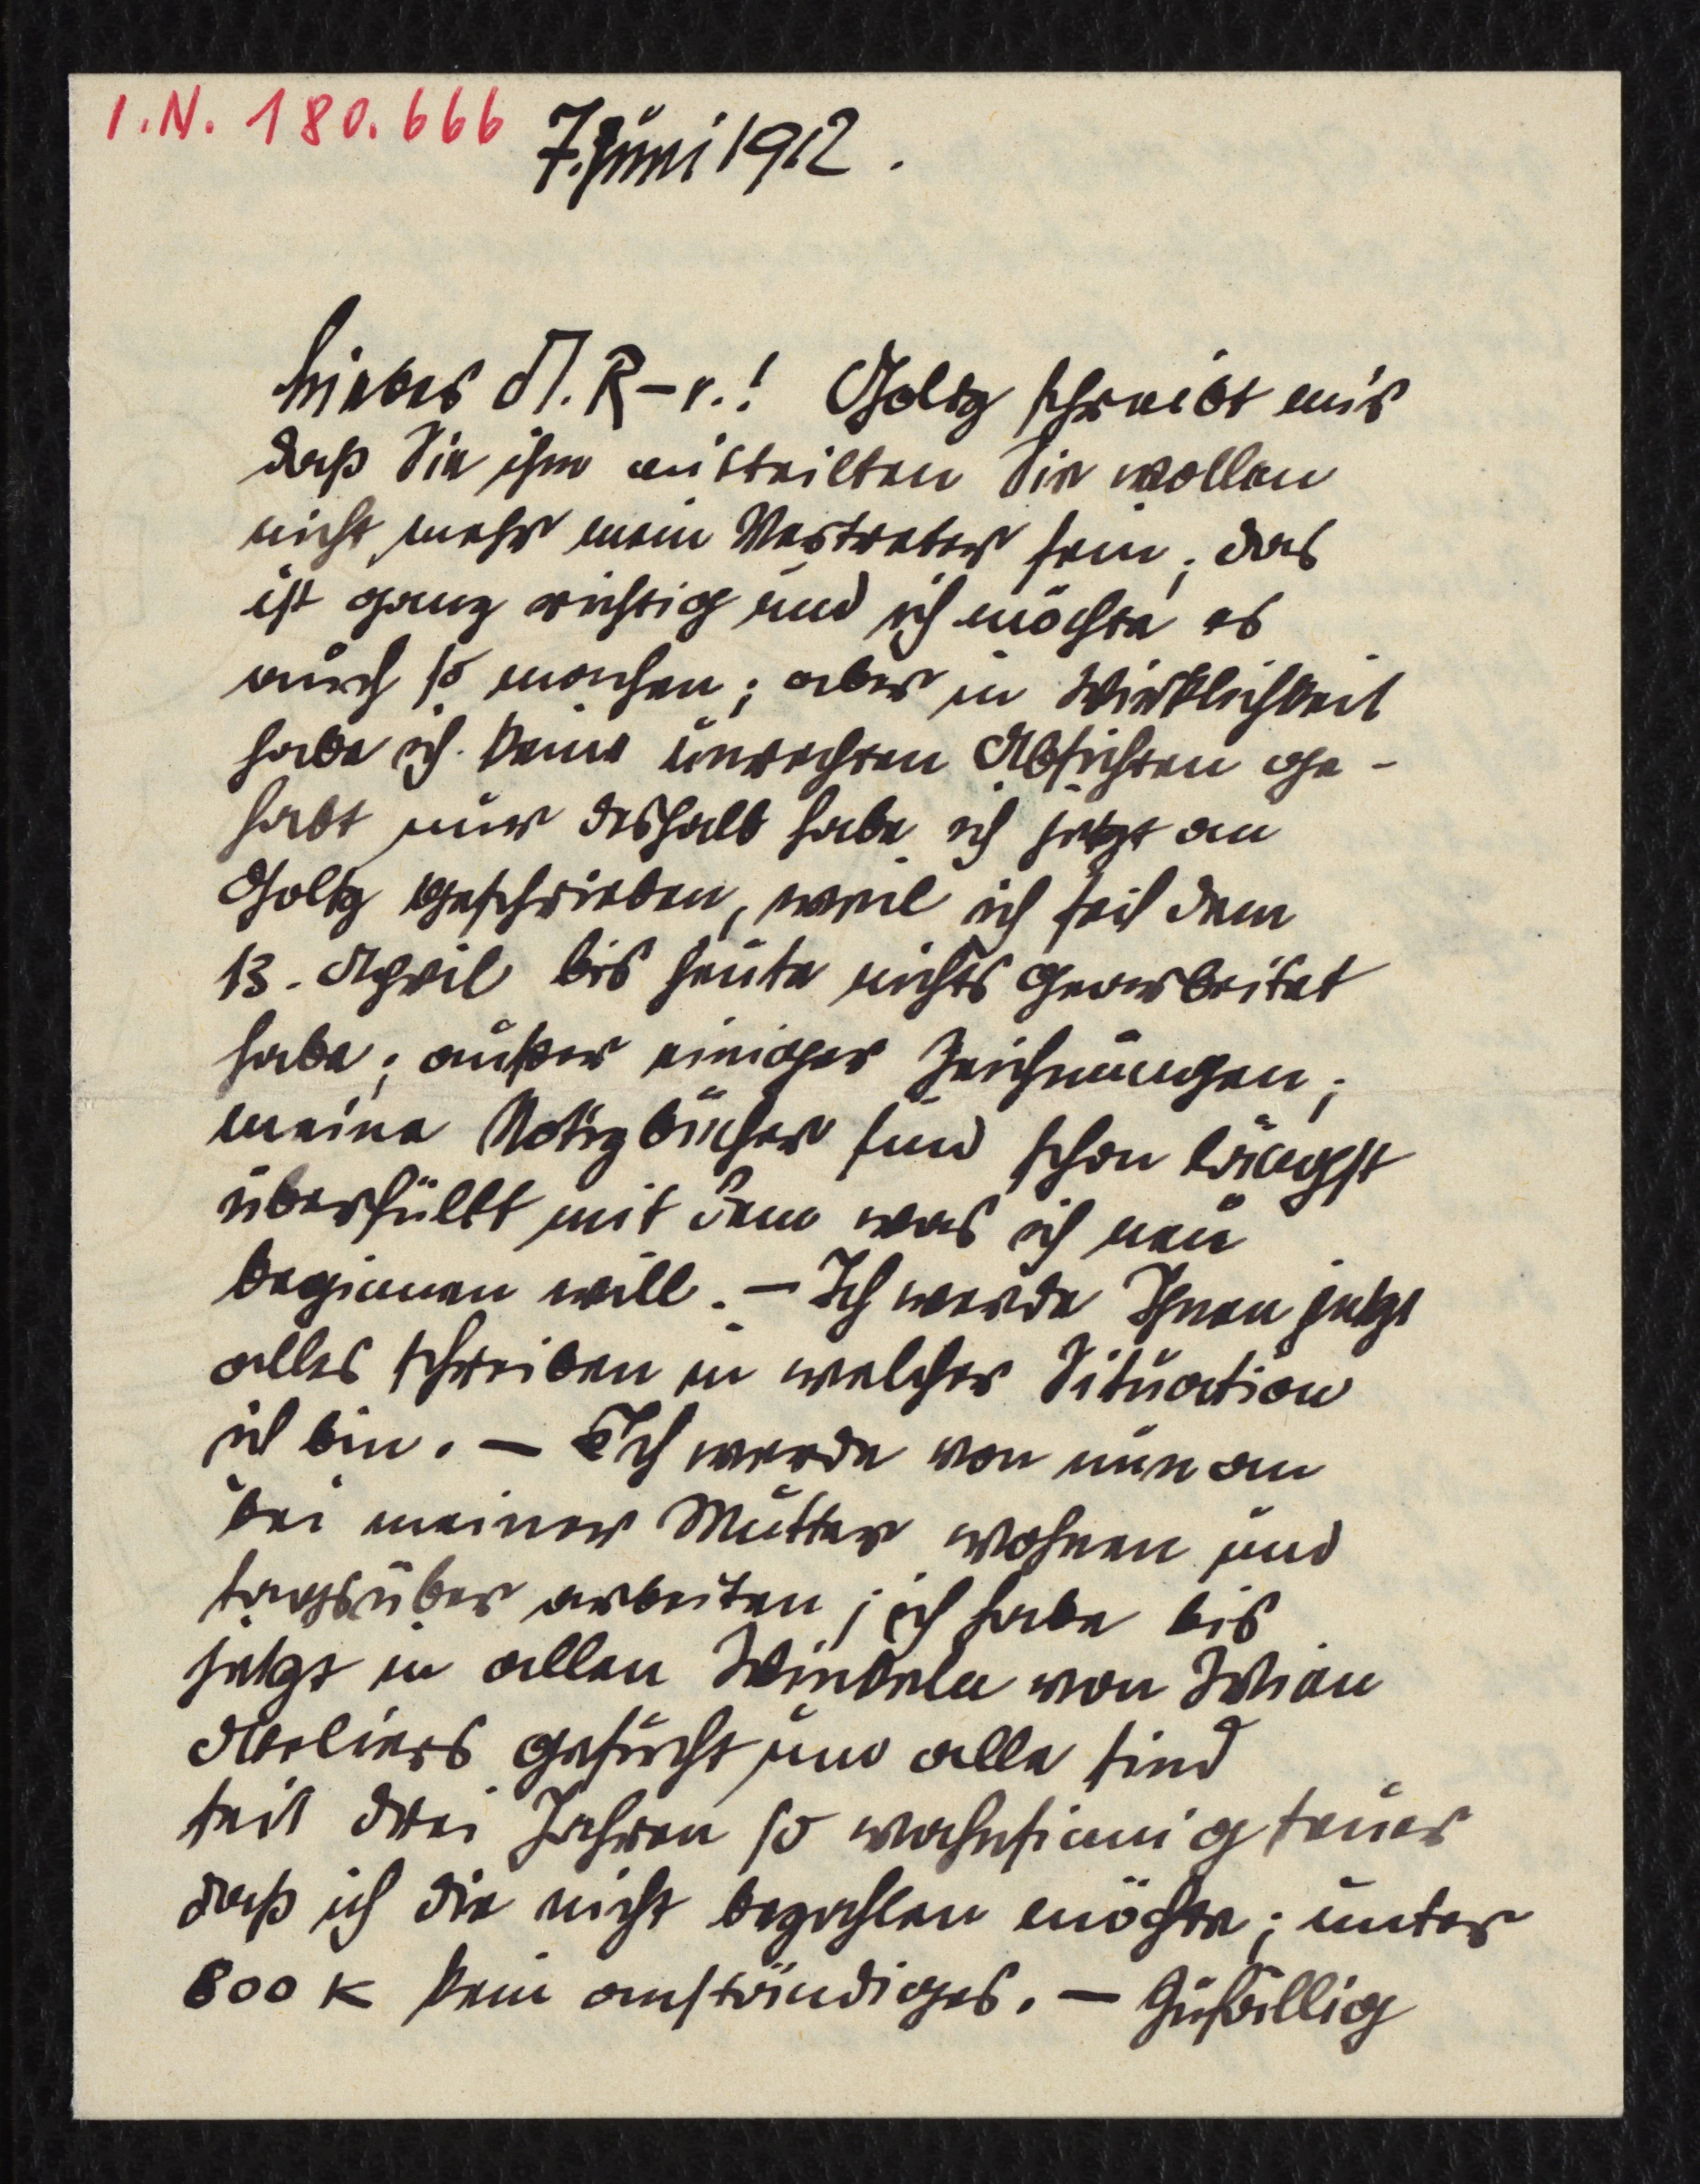 I.N. 180.666
7. Juni 1912.
Lieber A. R-r.! Goltz schreibt mir
daß Sie ihm mitteilten Sie wollen
nicht mehr mein Vertreter sein; das
ist ganz richtig und ich möchte es
auch so machen; aber in Wirklichkeit
habe ich keine unrechten Absichten ge-
habt nur deshalb habe ich jetzt an
Goltz geschrieben, weil ich seit dem
13. April bis heute nichts gearbeitet
habe; außer einiger Zeichnungen;
meine Notizbücher sind schon längst
überfüllt mit dem was ich neu
beginnen will. – Ich werde Ihnen jetzt
alles schreiben in welcher Situation
ich bin. – Ich werde von nun an
bei meiner Mutter wohnen und
tagsüber arbeiten; ich habe bis
jetzt in allen Winkeln von Wien
Ateliers gesucht und alle sind
seit drei Jahren so wahnsinnig teuer
daß ich die nicht bezahlen möchte; unter
800 K kein anständiges. – Zufällig